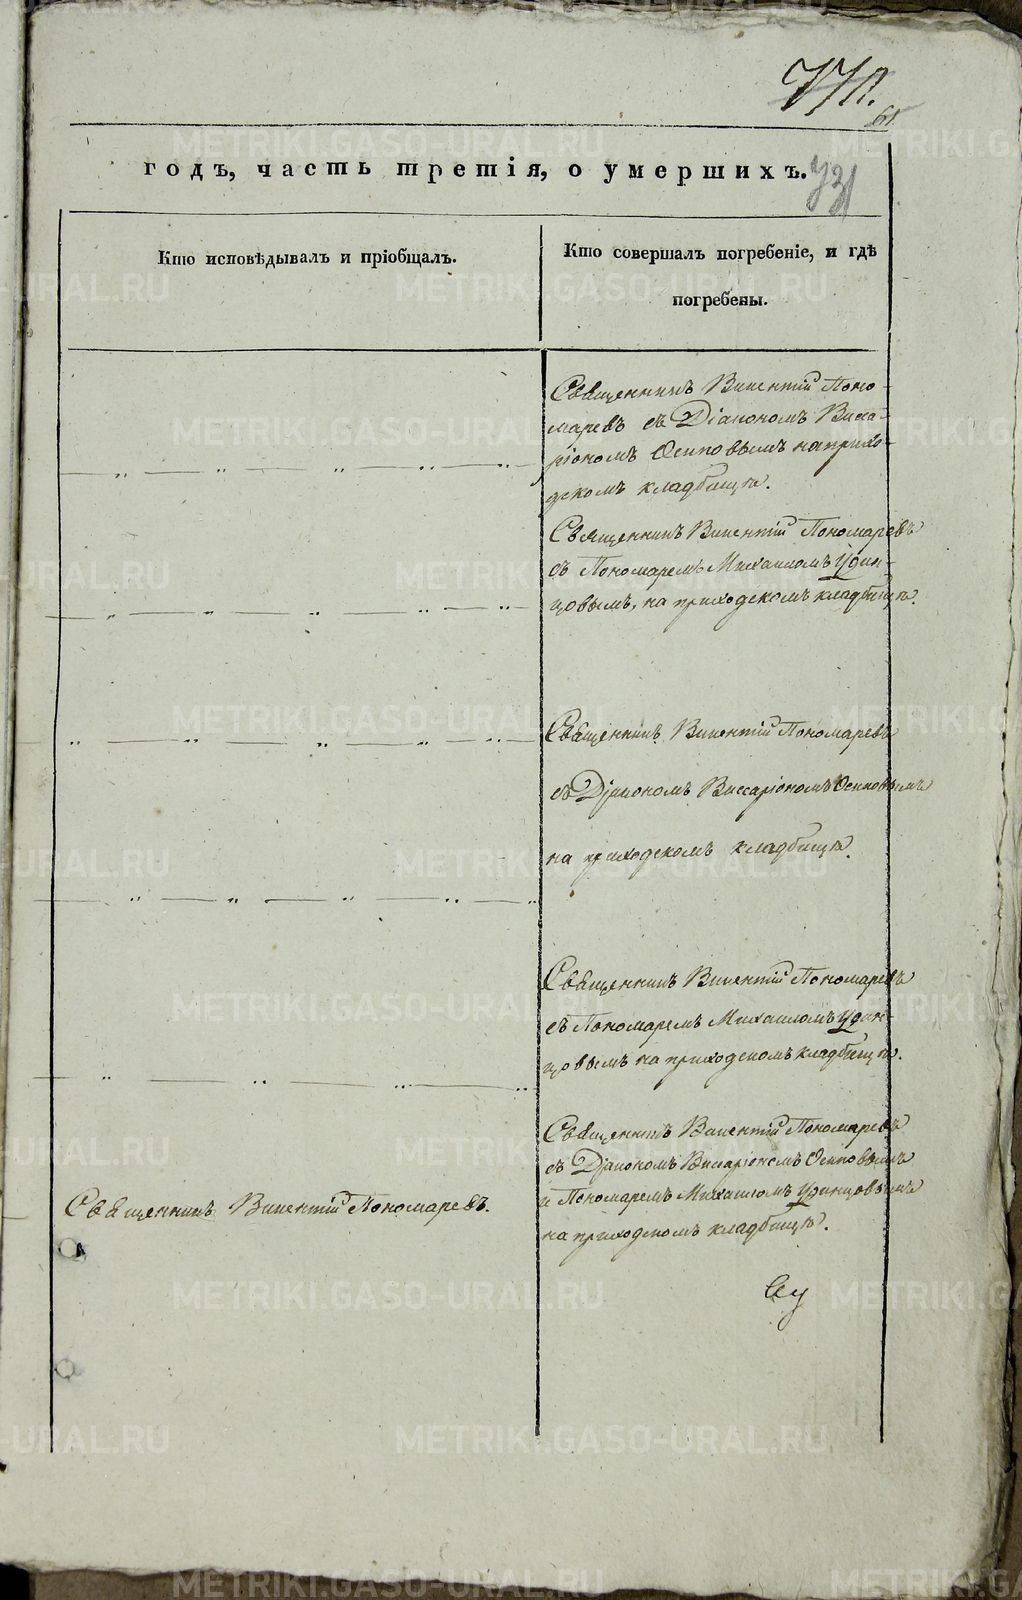 61
годъ, часть третія, о умершихъ.
Кто исповѣдывалъ и пріобщалъ.
Кто совершалъ погребеніе, и гдѣ
погребены.
Священникъ Викентій Поно-
маревъ съ Діакономъ Висса-
ріономъ Осиповымъ на прихо-
дскомъ кладбищѣ.
Священникъ Викентій Пономаревъ
съ Пономаремъ Михаиломъ Удин-
цовымъ, на приходскомъ кладбищѣ.
Священникъ Викентій Пономаревъ
съ Діакономъ Виссаріономъ Осиповымъ
на приходскомъ кладбищѣ.
Священникъ Викентій Пономаревъ
съ Пономаремъ Михаиломъ Удин-
цовымъ на приходскомъ кладбищѣ.
Священникъ Викентій Пономаревъ
съ Діакономъ Виссаріономъ Осиповымъ
и Пономаремъ Михаиломъ Удинцовымъ
на приходскомъ кладбищѣ.
Священникъ Викентій Пономаревъ.
METRIKI.GASO-URAL.RU